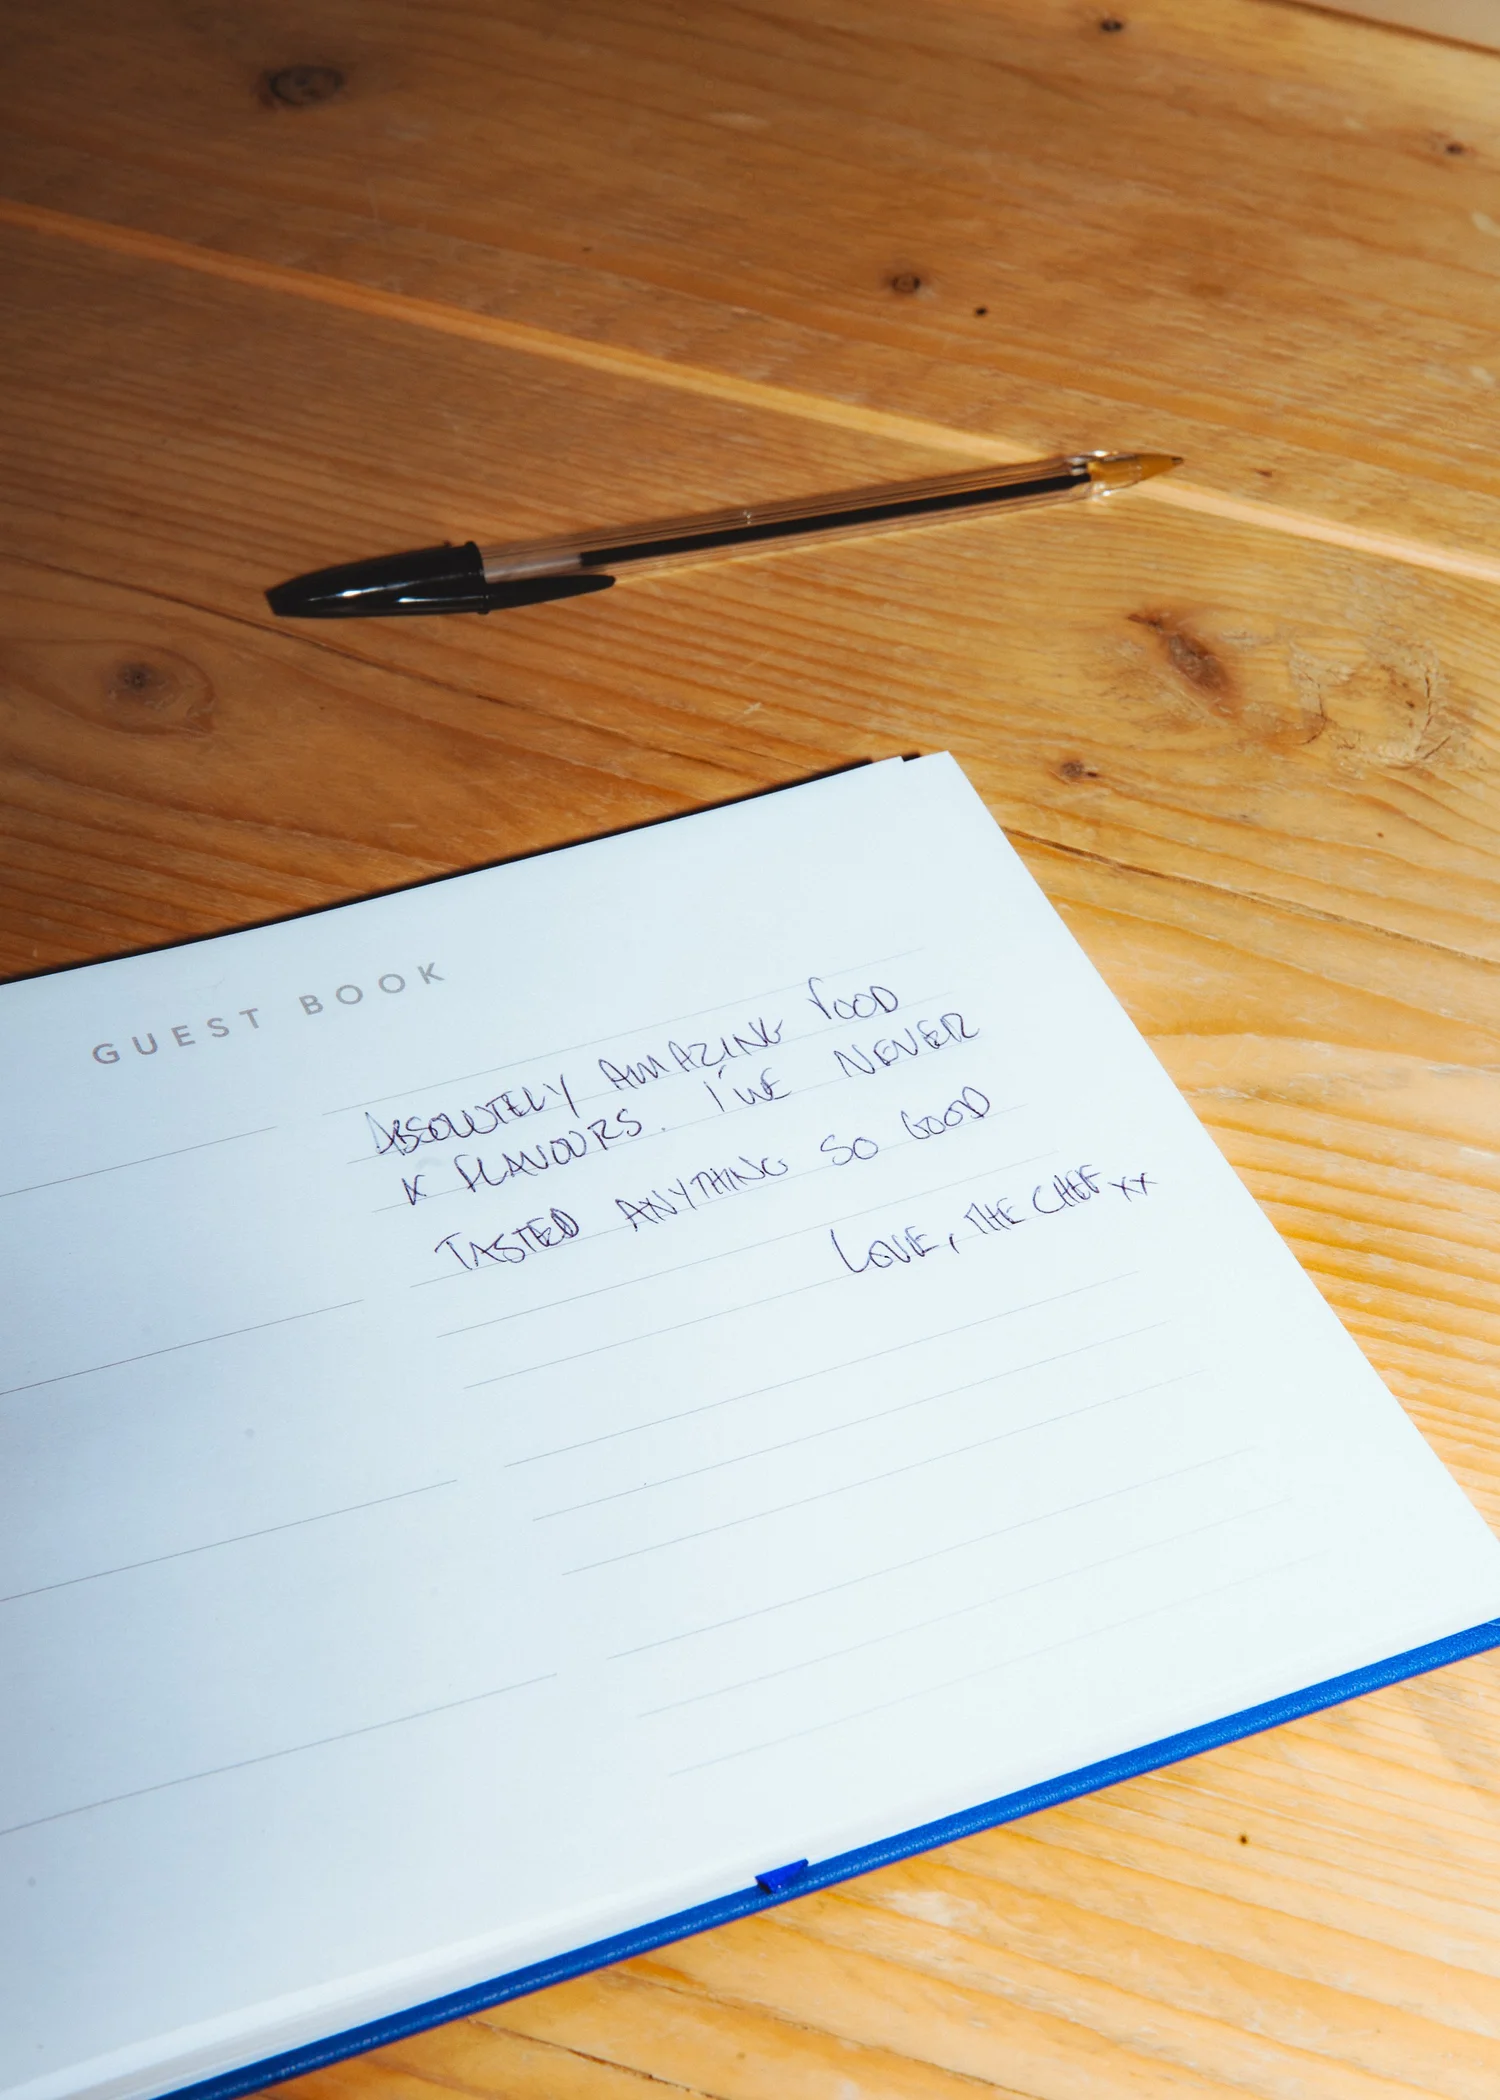 GUEST BOOK
ABSOLUTELY AMAZING FOOD
& FLAVOURS. I'VE NEVER
TASTED ANYTHING SO GOOD
LOVE, THE CHEF xx